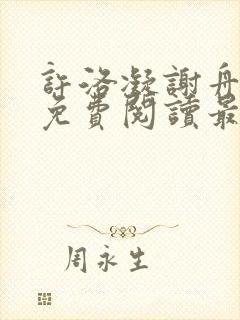 許洛凝謝舟
免費閱讀最
周永生